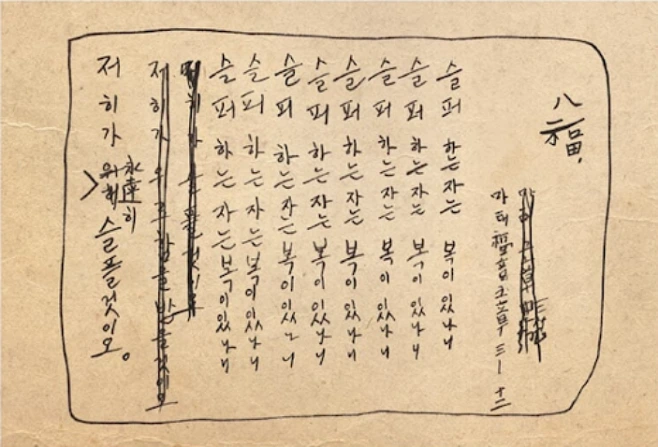 八福.
마태福音五章 三 — 十二
슬퍼 하는 자는 복이있나니
슬퍼 하는 자는 복이있나니
슬퍼 하는 자는 복이있나니
슬퍼 하는 자는 복이있나니
슬퍼 하는 자는 복이있나니
슬퍼 하는 자는 복이있나니
슬퍼 하는 자는 복이있나니
슬퍼 하는 자는 복이있나니
저히가 슬플것이오
저히가 위로함을받을것이오
저히가 永遠히 슬플것이오。